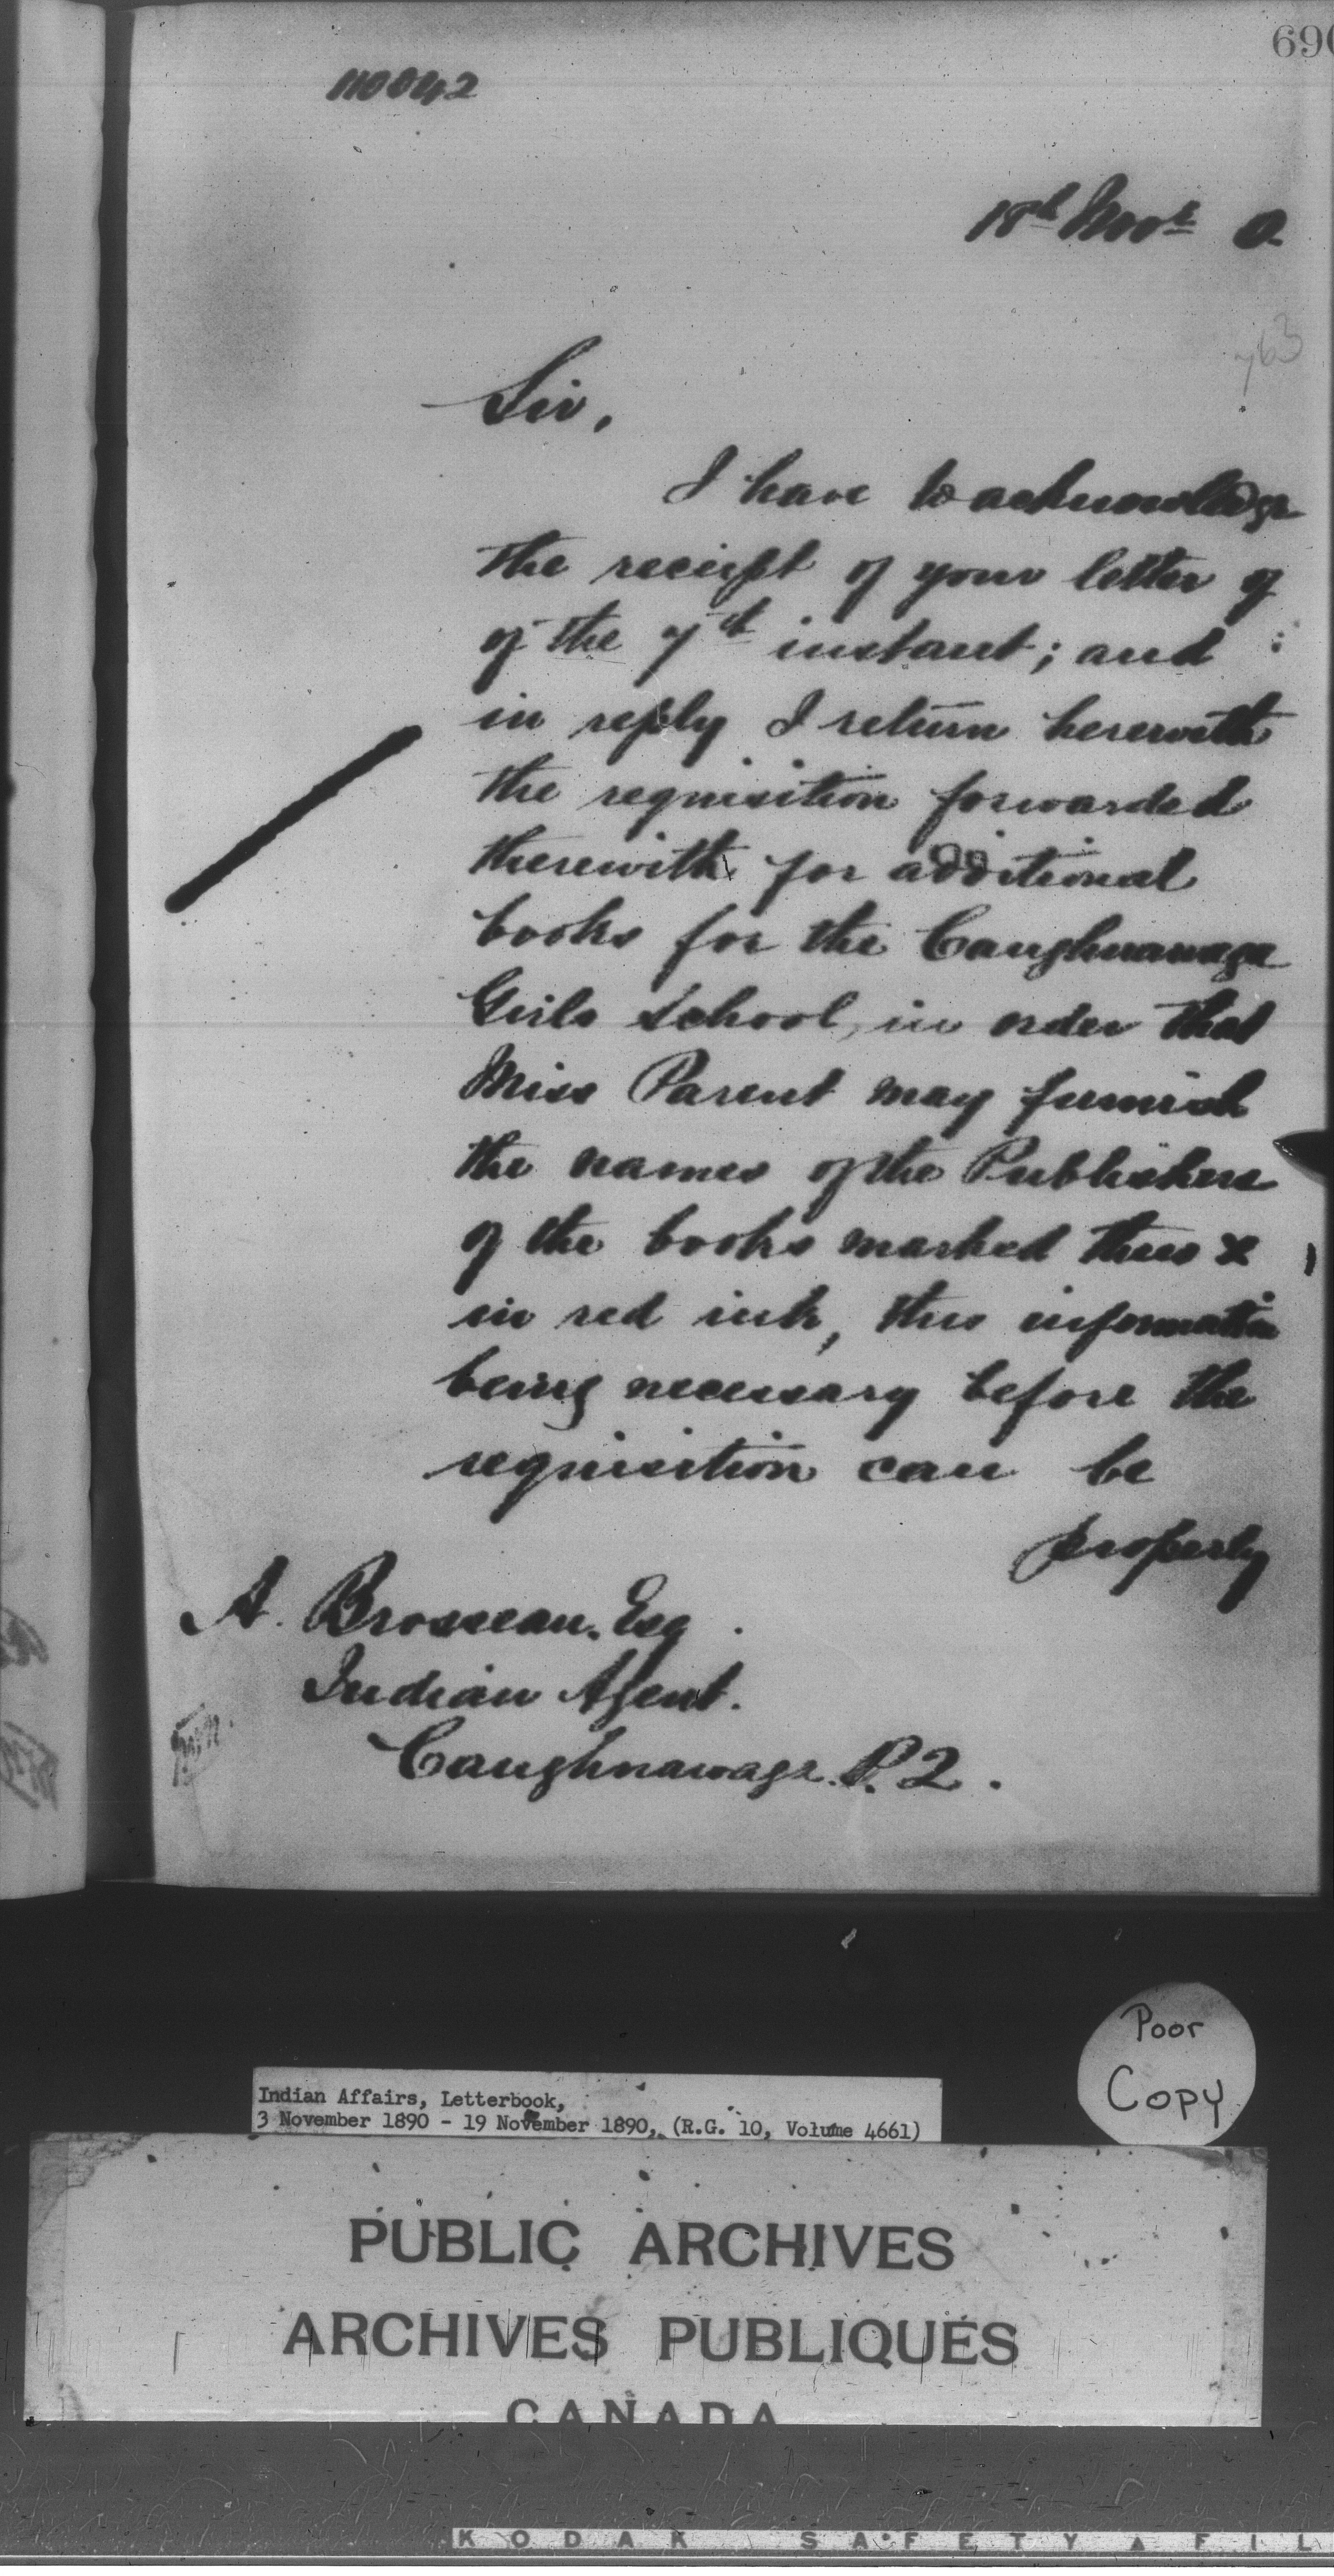 690
110042
18th Novr 0
763
Sir,
I have to acknowledge
the receipt of your letter of
of the 7th instant; and
in reply I return herewith
the requisition forwarded
therewith for additional
books for the Caughnawaga
Girls School, in order that
Miss Parent may furnish
the names of the Publishers
of the books marked thus x
in red ink, this information
being necessary before the
requisition can be
properly
A. Brosseau. Esq.
Indian Agent.
Caughnawaga. P.Q.
Poor
Copy
Indian Affairs, Letterbook,
3 November 1890 - 19 November 1890, (R.G. 10, Volume 4661)
PUBLIC ARCHIVES
ARCHIVES PUBLIQUES
CANADA
KODAK SAFETY FIL